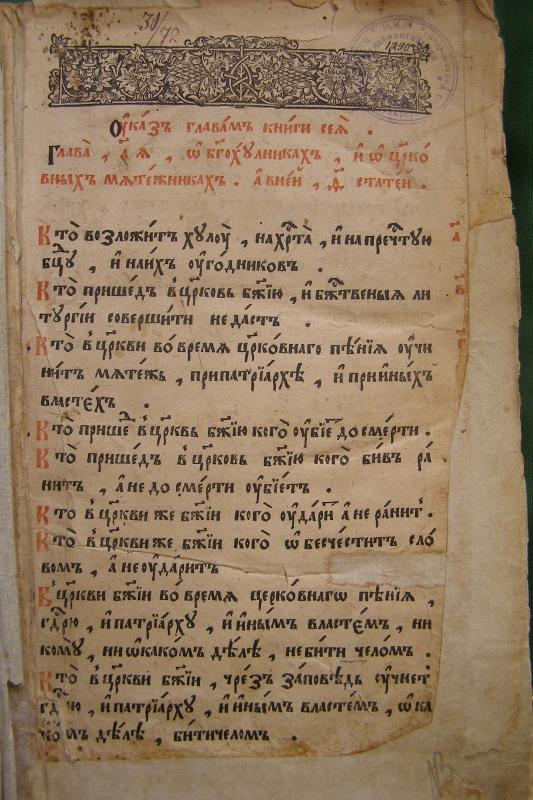 30/72
1290
Ѹ҆ка́зъ глава́мъ книги сея̀ .
Глава̀ , а҃ я , ѡ҆ бг҃охулникахъ , и҆ ѡ҆ цр҃ко
вныхъ мѧте́жникахъ . а в не́й , ѳ҃ стате́й .
Кто̀ возложи́тъ хулѹ̀ , на хрⷭ҇та̀ , и҆ на пречⷭ҇тую
бцⷣу , и҆ на и́хъ ѹ҆го́дниковъ .
Кто̀ прише́дъ в цр҃ковь бж҃їю , и҆ бж҃твеныѧ ли
тѹргі́и соверши́ти не да́стъ .
Кто̀ в цр҃кви во́ времѧ цр҃ко́внаго пѣ́нїѧ ѹ҆чи
ни́тъ мѧте́жь , при патрїа́рхѣ , и҆ при и҆ны́хъ
власте́хъ .
Кто̀ прише́ⷣ в цр҃квь бж҃їю кого̀ ѹ҆бїе́ⷮ до сме́рти .
Кто̀ прише́дъ в цр҃ковь бж҃їю кого̀ бивъ ра́
нитъ , а҆ не до сме́рти ѹ҆бїе́тъ .
Кто в цр҃кви же бж҃їи кого̀ ѹ҆да́риⷮ а҆ не ра́нитъ .
Кто̀ в цр҃кви же бж҃їи кого̀ ѡ҆бесче́ститъ сло́
вомъ , а҆ не ѹ҆да́ритъ
В цр҃кви бж҃їи во́ времѧ церко́внагѡ пѣ́нїѧ ,
гдⷭ҇рю , и҆ патрїа́рху , и҆ и҆ны́мъ власте́мъ , ни
кому̀ , ни ѡ҆ како́мъ дѣ́лѣ , не би́ти чело́мъ .
Кто̀ в цр҃кви бж҃їи , чре́зъ за́повѣдь ѹ҆чнеⷮ
гдⷭ҇рю , и҆ патрїа́рху , и҆ и҆ны́мъ власте́мъ , ѡ҆ ка
ко́мъ дѣ́лѣ , би́ти чело́мъ .
а҃
в҃